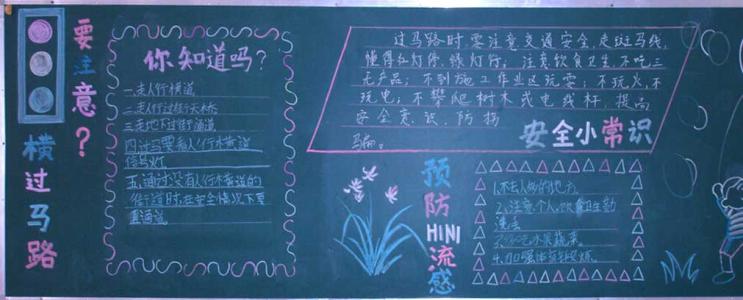 要注意？
横过马路
你知道吗？
一.走人行横道
二.走人行过街天桥
三.走地下过街通道
四.过马路要看人行横道
信号灯
五.通过没有人行横道的
街道时,在安全情况下直
通道
过马路时,要注意交通安全,走斑马线,
懂得红灯停、绿灯行；注意饮食卫生,不吃三
无产品；不到施工作业区玩耍；不玩火,不
玩电；不攀爬树木或电线杆,提高
安全意识,防拐
马骗。
安全小常识
预防H1N1流感
1.不去人多的地方
2.注意个人,饮食卫生,勤
洗手
3.多吃水果蔬菜。
4.加强体育锻炼。